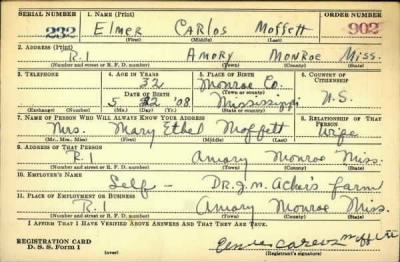 SERIAL NUMBER 1. NAME (Print) ORDER NUMBER
232 Elmer Carlos Moffett 902
(First) (Middle) (Last)
2. ADDRESS (Print)
R.1 Amory Monroe Miss.
(Number and street or R. F. D. number) (Town) (County) (State)
3. TELEPHONE 4. AGE IN YEARS 5. PLACE OF BIRTH 6. COUNTRY OF CITIZENSHIP
32 Monroe Co.
DATE OF BIRTH (Town or county)
5 '08 Mississippi U.S.
(Exchange) (Number) (Mo.) (Day) (Yr.) (State or country)
7. NAME OF PERSON WHO WILL ALWAYS KNOW YOUR ADDRESS 8. RELATIONSHIP OF THAT PERSON
Mrs. Mary Ethel Moffett Wife
(Mr., Mrs., Miss) (First) (Middle) (Last)
9. ADDRESS OF THAT PERSON
R.1 Amory Monroe Miss.
(Number and street or R. F. D. number) (Town) (County) (State)
10. EMPLOYER'S NAME
Self - Dr. J. M. Acker's farm
11. PLACE OF EMPLOYMENT OR BUSINESS
R.1 Amory Monroe Miss.
(Number and street or R. F. D. number) (Town) (County) (State)
I AFFIRM THAT I HAVE VERIFIED ABOVE ANSWERS AND THAT THEY ARE TRUE.
REGISTRATION CARD
D. S. S. Form 1 (over) Elmer Carlos Moffett
(Registrant's signature)